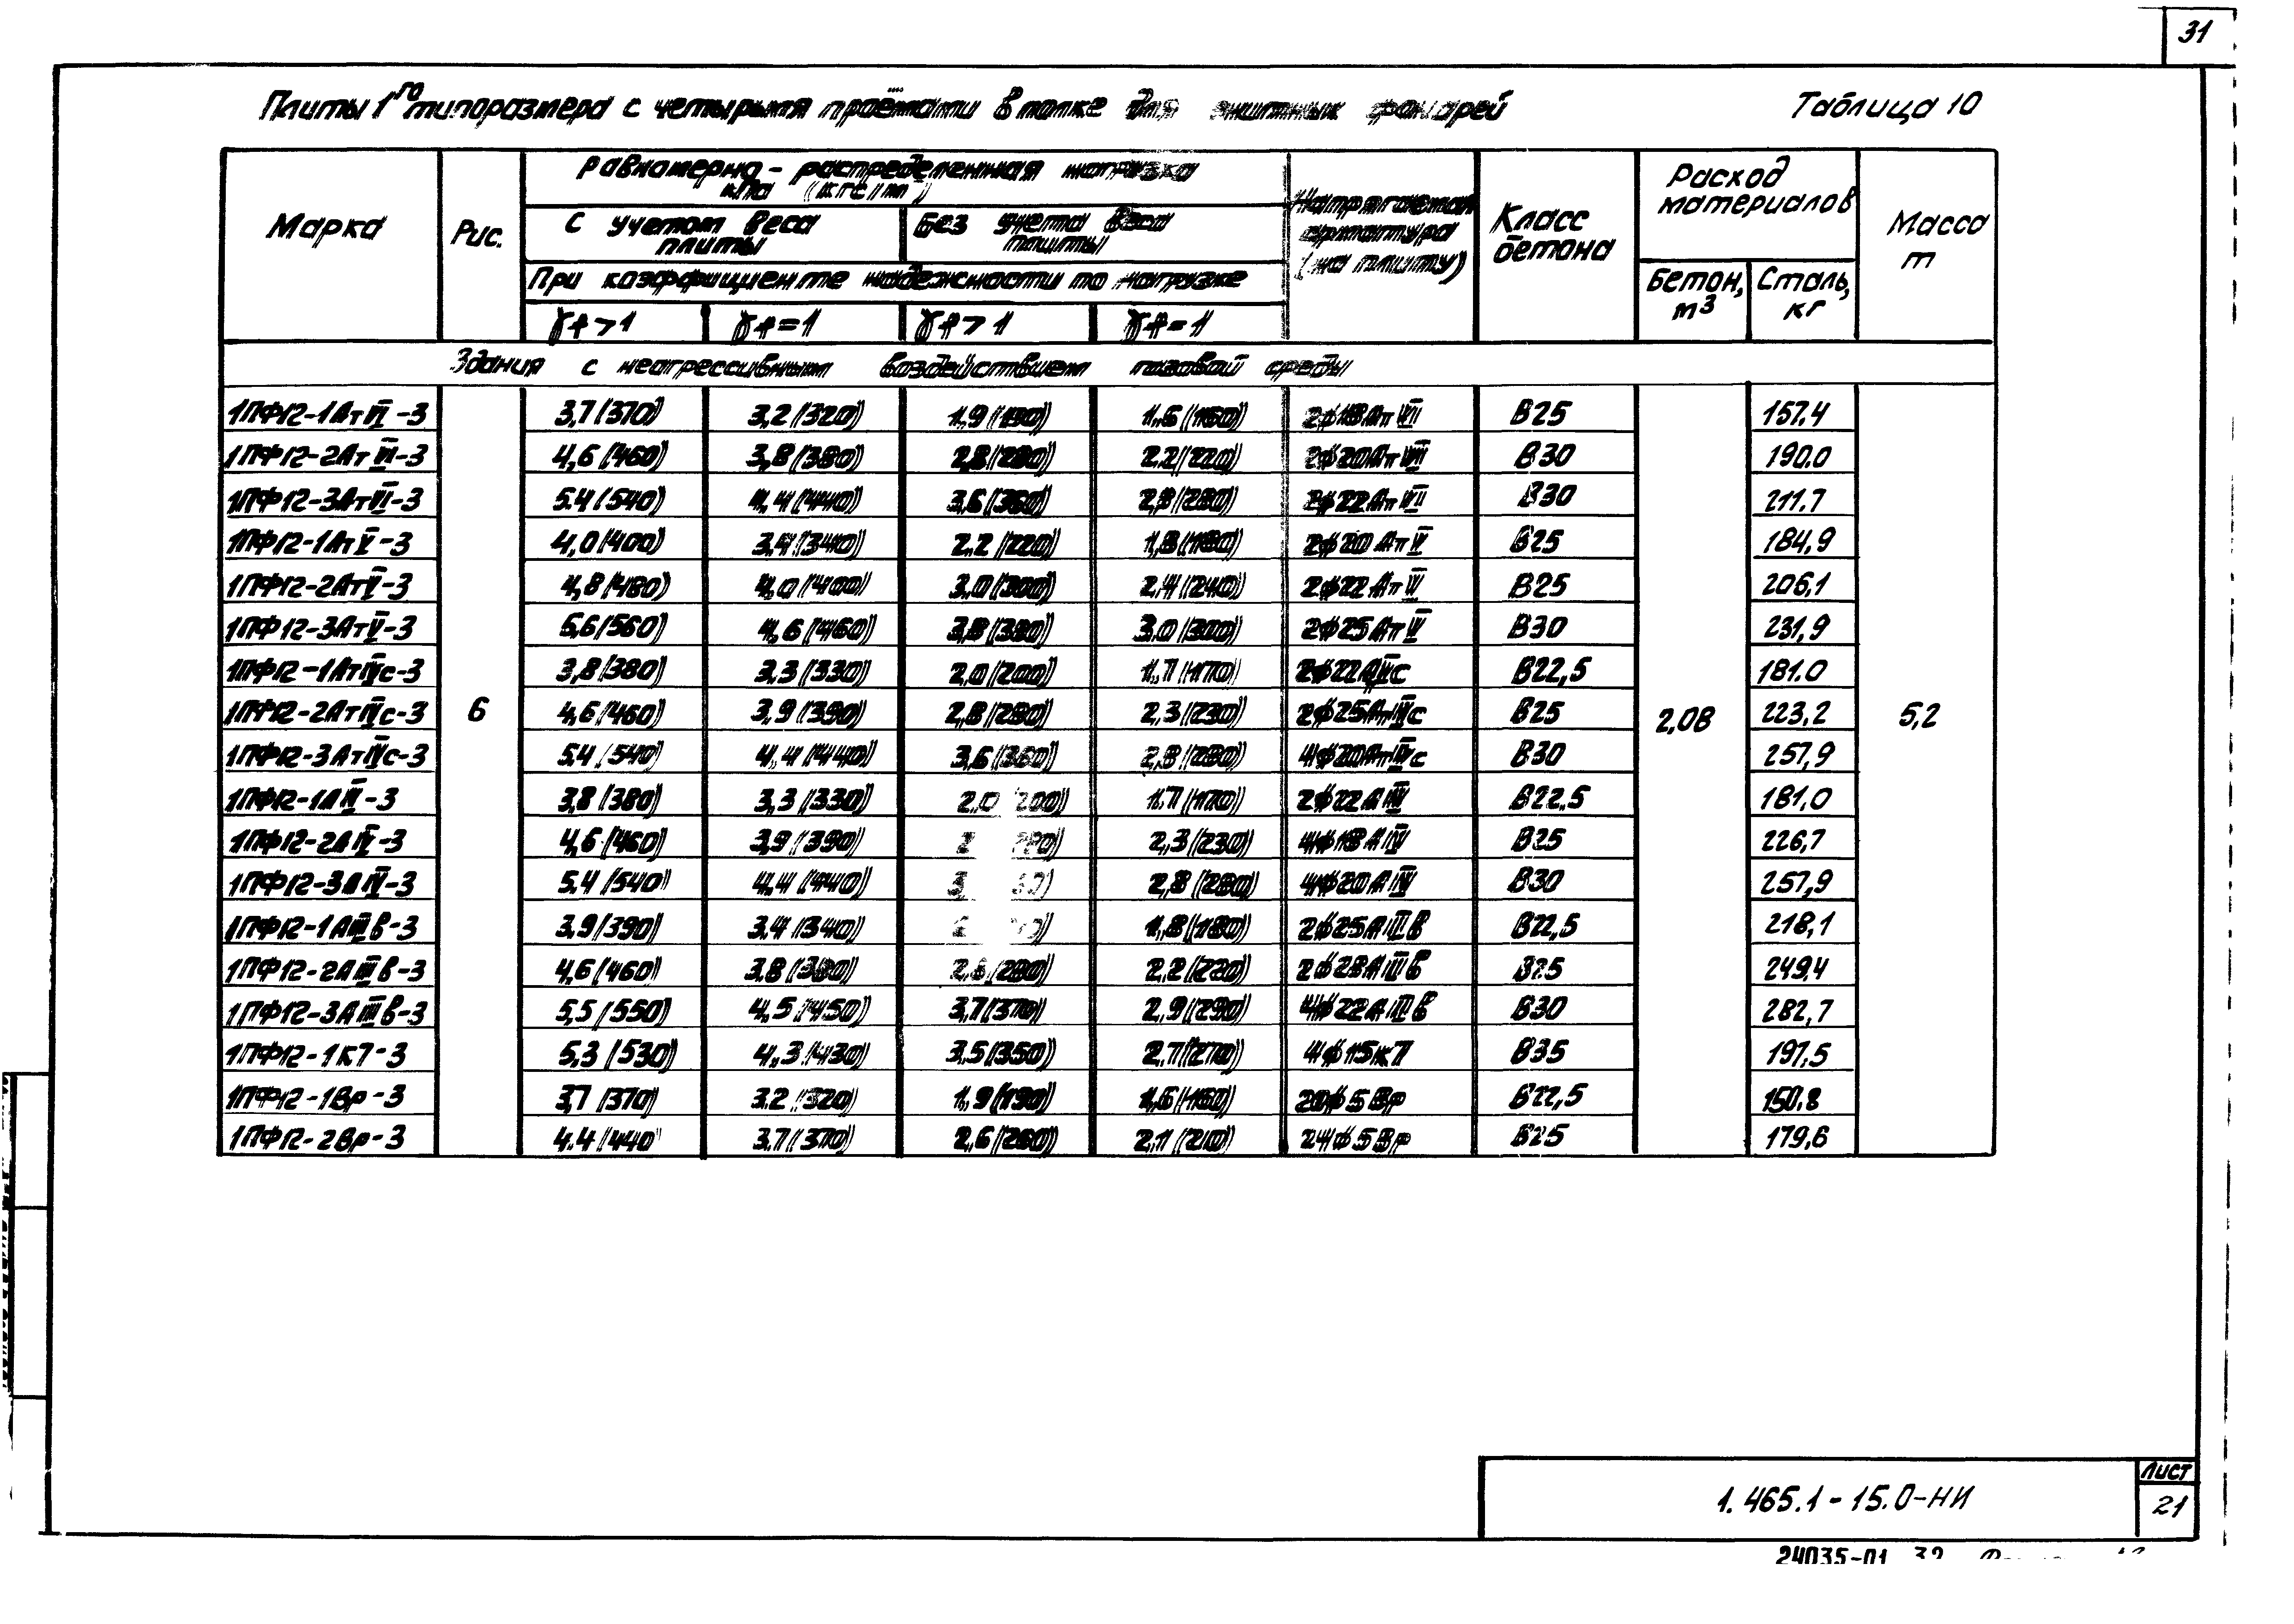 31
Плиты 1го типоразмера с четырьмя проёмами в полке для зенитных фонарей Таблица 10
Марка Рис. Равномерно-распределенная нагрузка кПа (кгс/м²) Напрягаемая арматура (на плиту) Класс бетона Расход материалов Масса т
С учетом веса плиты Без учета веса плиты
При коэффициенте надежности по нагрузке Бетон, м³ Сталь, кг
γf>1 γf=1 γf>1 γf=1
Здания с неагрессивным воздействием газовой среды
1ПФ12-1АтVI-3 3,7(370) 3,2(320) 1,9(190) 1,6(160) 2φ18АтVI В25 157,4
1ПФ12-2АтVI-3 4,6(460) 3,8(380) 2,8(280) 2,2(220) 2φ20АтVI В30 190.0
1ПФ12-3АтVI-3 5.4(540) 4,4(440) 3,6(360) 2,8(280) 2φ22АтVI В30 211.7
1ПФ12-1АтV-3 4,0(400) 3,4(340) 2.2(220) 1,8(180) 2φ20АтV В25 184,9
1ПФ12-2АтV-3 4,8(480) 4,0(400) 3,0(300) 2,4(240) 2φ22АтV В25 206,1
1ПФ12-3АтV-3 5,6(560) 4,6(460) 3,8(380) 3.0(300) 2φ25АтV В30 231,9
1ПФ12-1АтIVс-3 3,8(380) 3,3(330) 2,0(200) 1,7(170) 2φ22АIVс В22,5 181.0
1ПФ12-2АтIVс-3 6 4,6(460) 3,9(390) 2,8(280) 2,3(230) 2φ25АтIVс В25 2,08 223,2 5,2
1ПФ12-3АтIVс-3 5,4(540) 4,4(440) 3,6(360) 2,8(280) 4φ20АтIVс В30 257,9
1ПФ12-1АIV-3 3,8(380) 3,3(330) 2,0(200) 1.7(170) 2φ22АIV В22,5 181,0
1ПФ12-2АIV-3 4,6(460) 3,9(390) 2,3(230) 4φ18АIV В25 226,7
1ПФ12-3АIV-3 5,4(540) 4,4(440) 2,8(280) 4φ20АIV В30 257,9
1ПФ12-1АIIIв-3 3,9(390) 3,4(340) 1,8(180) 2φ25АIIIв В22,5 218,1
1ПФ12-2АIIIв-3 4,6(460) 3,8(380) 2,8(280) 2,2(220) 2φ28АIIIв В25 249,4
1ПФ12-3АIIIв-3 5,5(550) 4,5(450) 3,7(370) 2,9(290) 4φ22АIIIв В30 282,7
1ПФ12-1К7-3 5,3(530) 4,3(430) 3,5(350) 2,7(270) 4φ15К7 В35 197,5
1ПФ12-1Вр-3 3,7(370) 3.2(320) 1,9(190) 1,6(160) 20φ5Вр В22,5 150.8
1ПФ12-2Вр-3 4.4(440 3.7(370) 2,6(260) 2,1(210) 24φ5Вр В25 179,6
1.465.1-15.0-НИ
Лист
21
24035-01 32